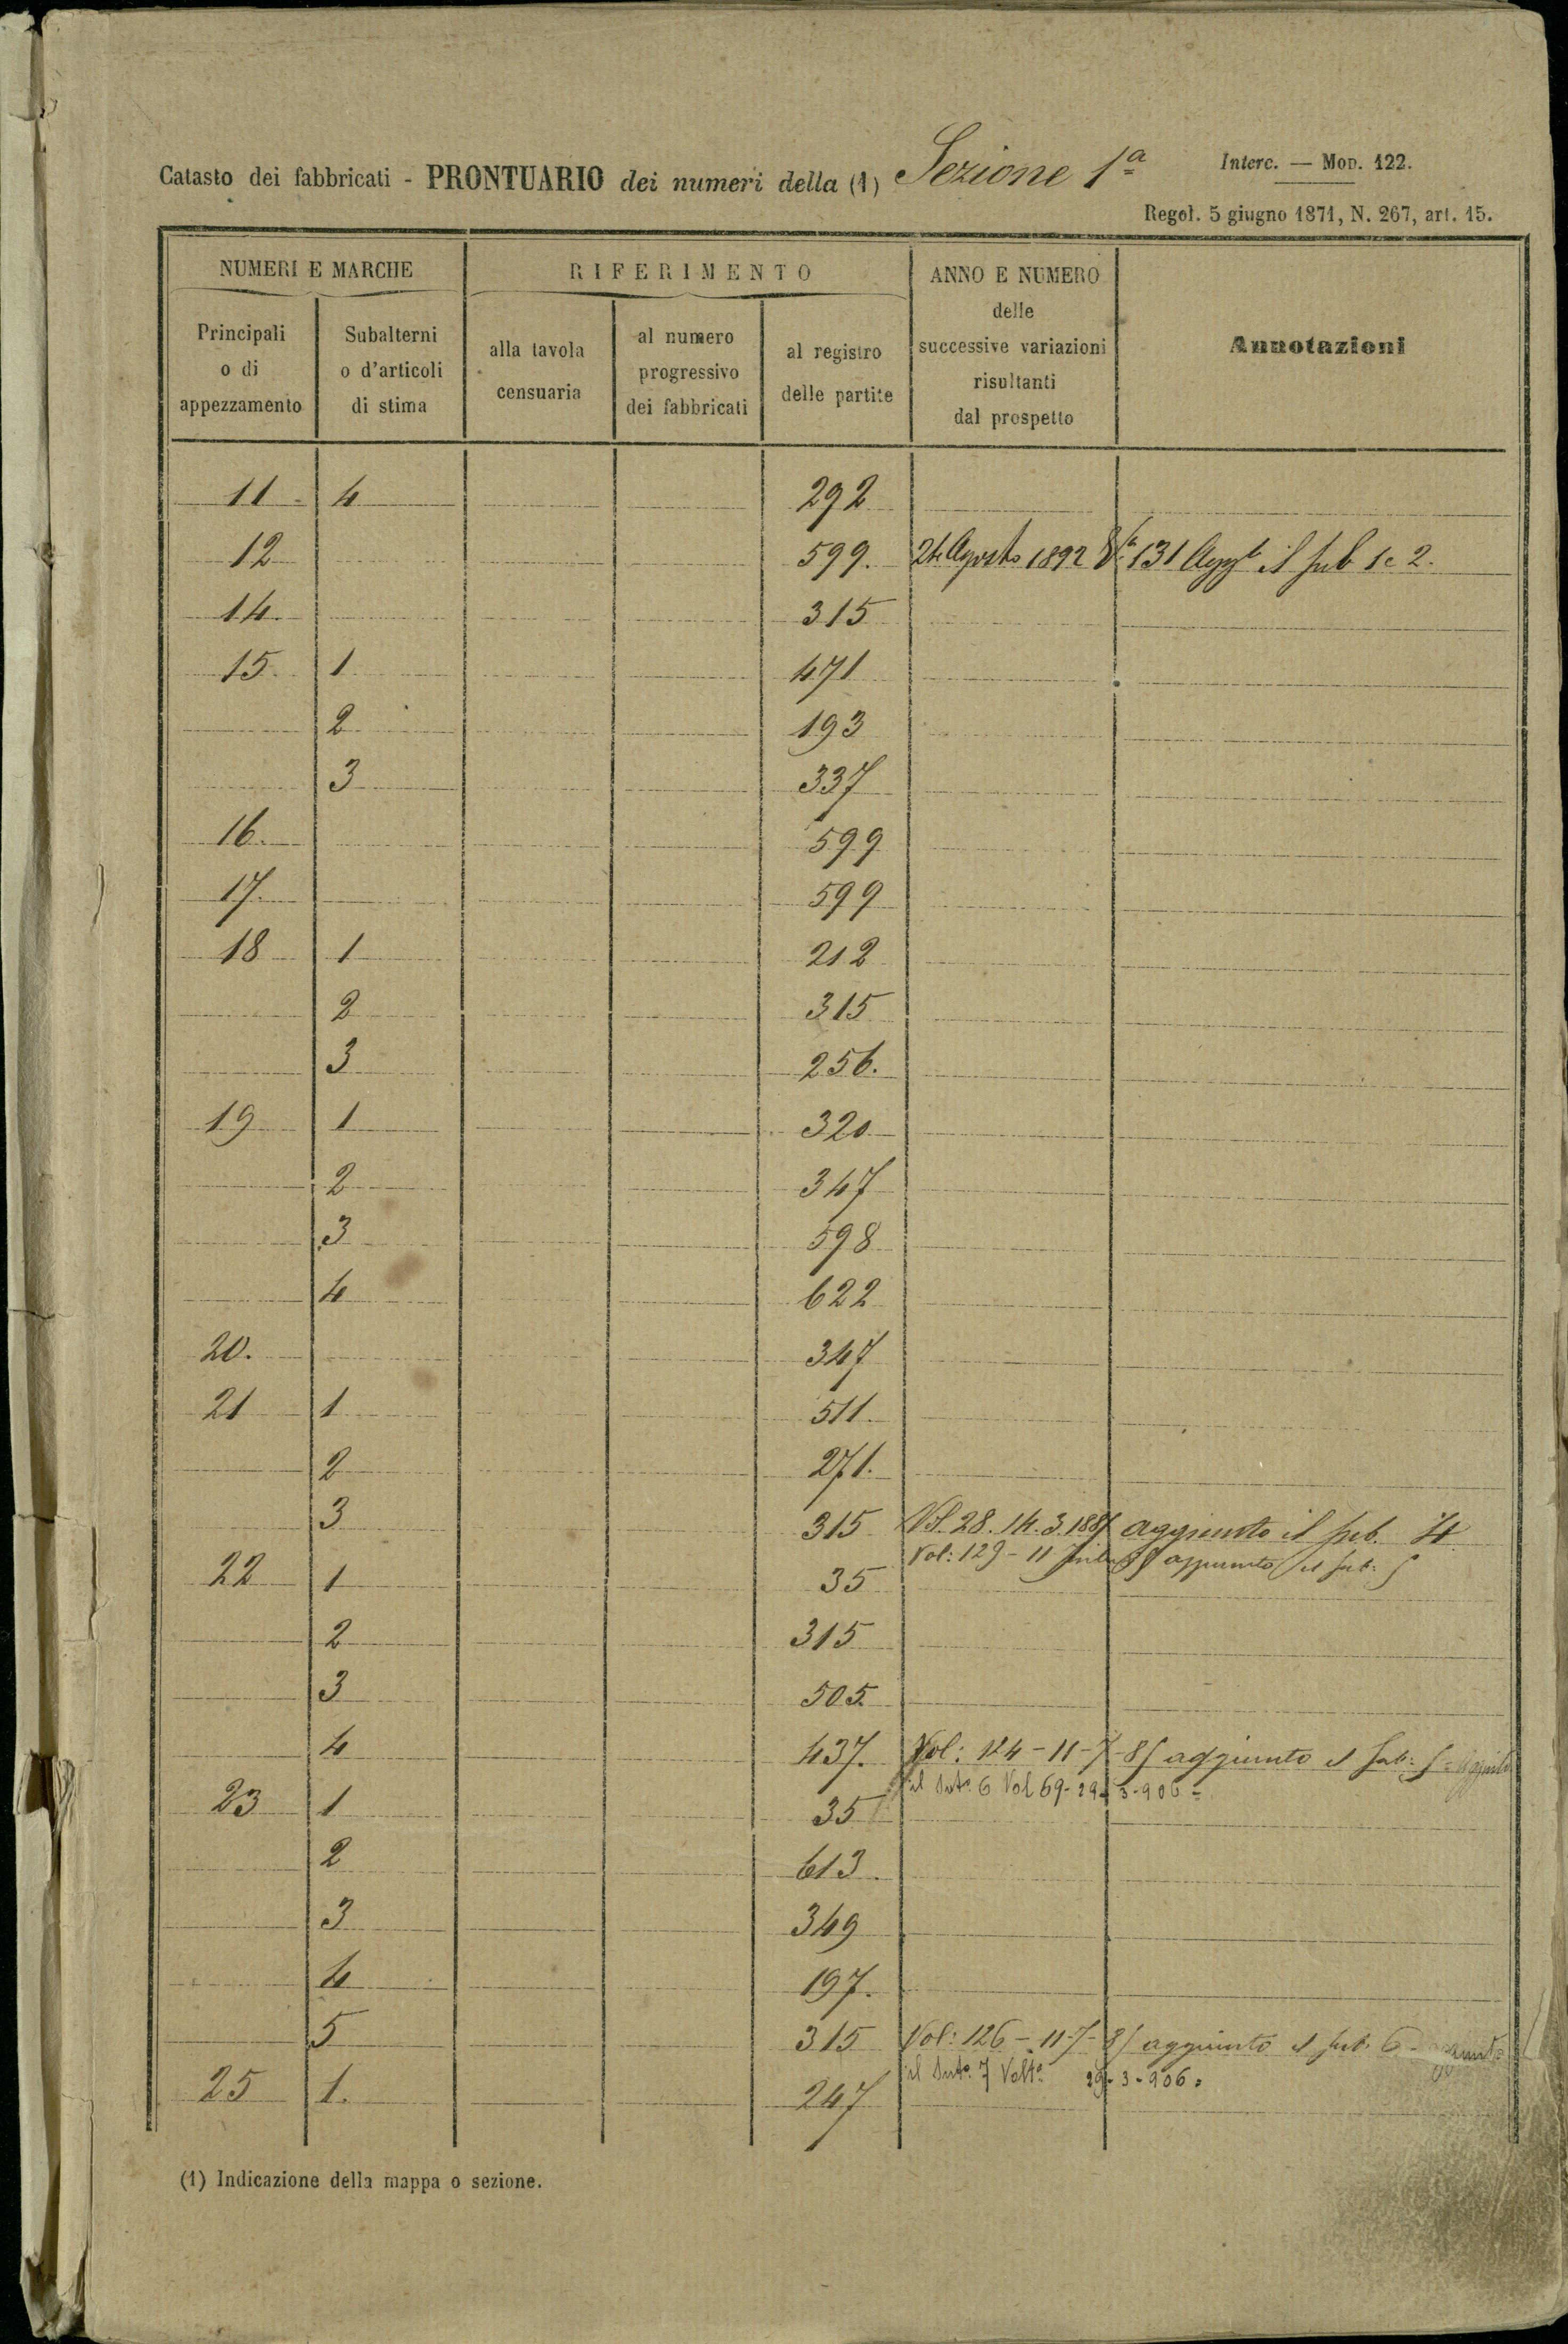 Catasto dei fabbricati - PRONTUARIO dei numeri della (1) Sezione 1ª
Interc. — Mod. 122.
Regol. 5 giugno 1871, N. 267, art. 15.
NUMERI E MARCHE
RIFERIMENTO
ANNO E NUMERO
delle
successive variazioni
risultanti
dal prospetto
Annotazioni
Principali
o di
appezzamento
Subalterni
o d'articoli
di stima
alla tavola
censuaria
al numero
progressivo
dei fabbricati
al registro
delle partite
11 4 292
12 599. 24 Agosto 1892 131 il sub 1 e 2.
14. 315
15. 1 471
2 193
3 337
16. 599
17. 599
18 1 212
2 315
3 256.
19 1 320
2 347
3 598
4 622
20. 347
21 1 511.
2 271.
3 315 Vol. 28. 14. 3. aggiunto il sub. 4
Vol: 129 - 11 aggiunto il sub:
22 1 35
2 315
3 505.
4 437. Vol: 124 - 11 - 7 - 85 aggiunto il sub: 5 = aggiunto
il Sub. 6 Vol 69 - 29 - 3 - 906 =
23 1 35
2 613.
3 349
4 197.
5 315 Vol: 126 - 11 - 7 - 85 aggiunto il sub. 6 - aggiunto
il Sub. 7 29 - 3 - 906 =
25 1. 247
(1) Indicazione della mappa o sezione.